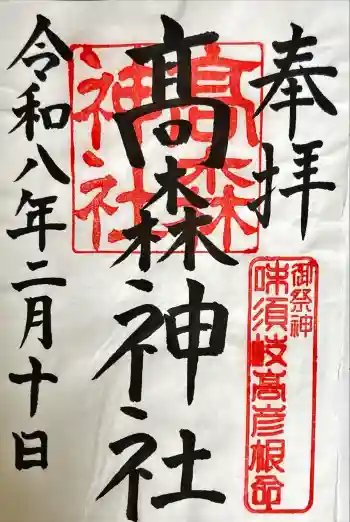 奉拝
御祭神
味須岐高彦根命
髙森神社
高森
神社
令和八年二月十日